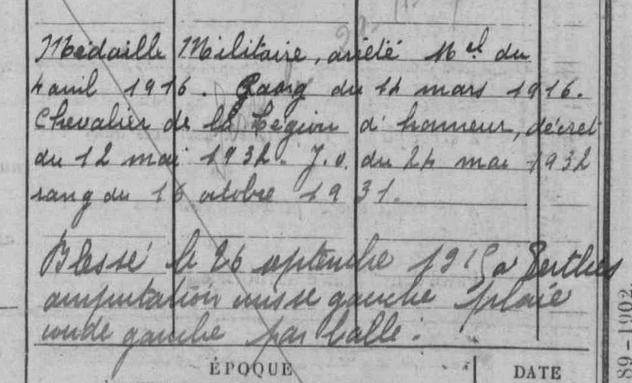 Médaille Militaire, arrêté Mel du
4 avril 1916. Rang du 14 mars 1916.
Chevalier de la Légion d'honneur, décret
du 12 mai 1932. J.O. du 24 mai 1932
rang du 16 octobre 1931.
Blessé le 26 septembre 1915 à Perthes
amputation cuisse gauche plaie
coude gauche par balle.
ÉPOQUE
DATE
89-1902.